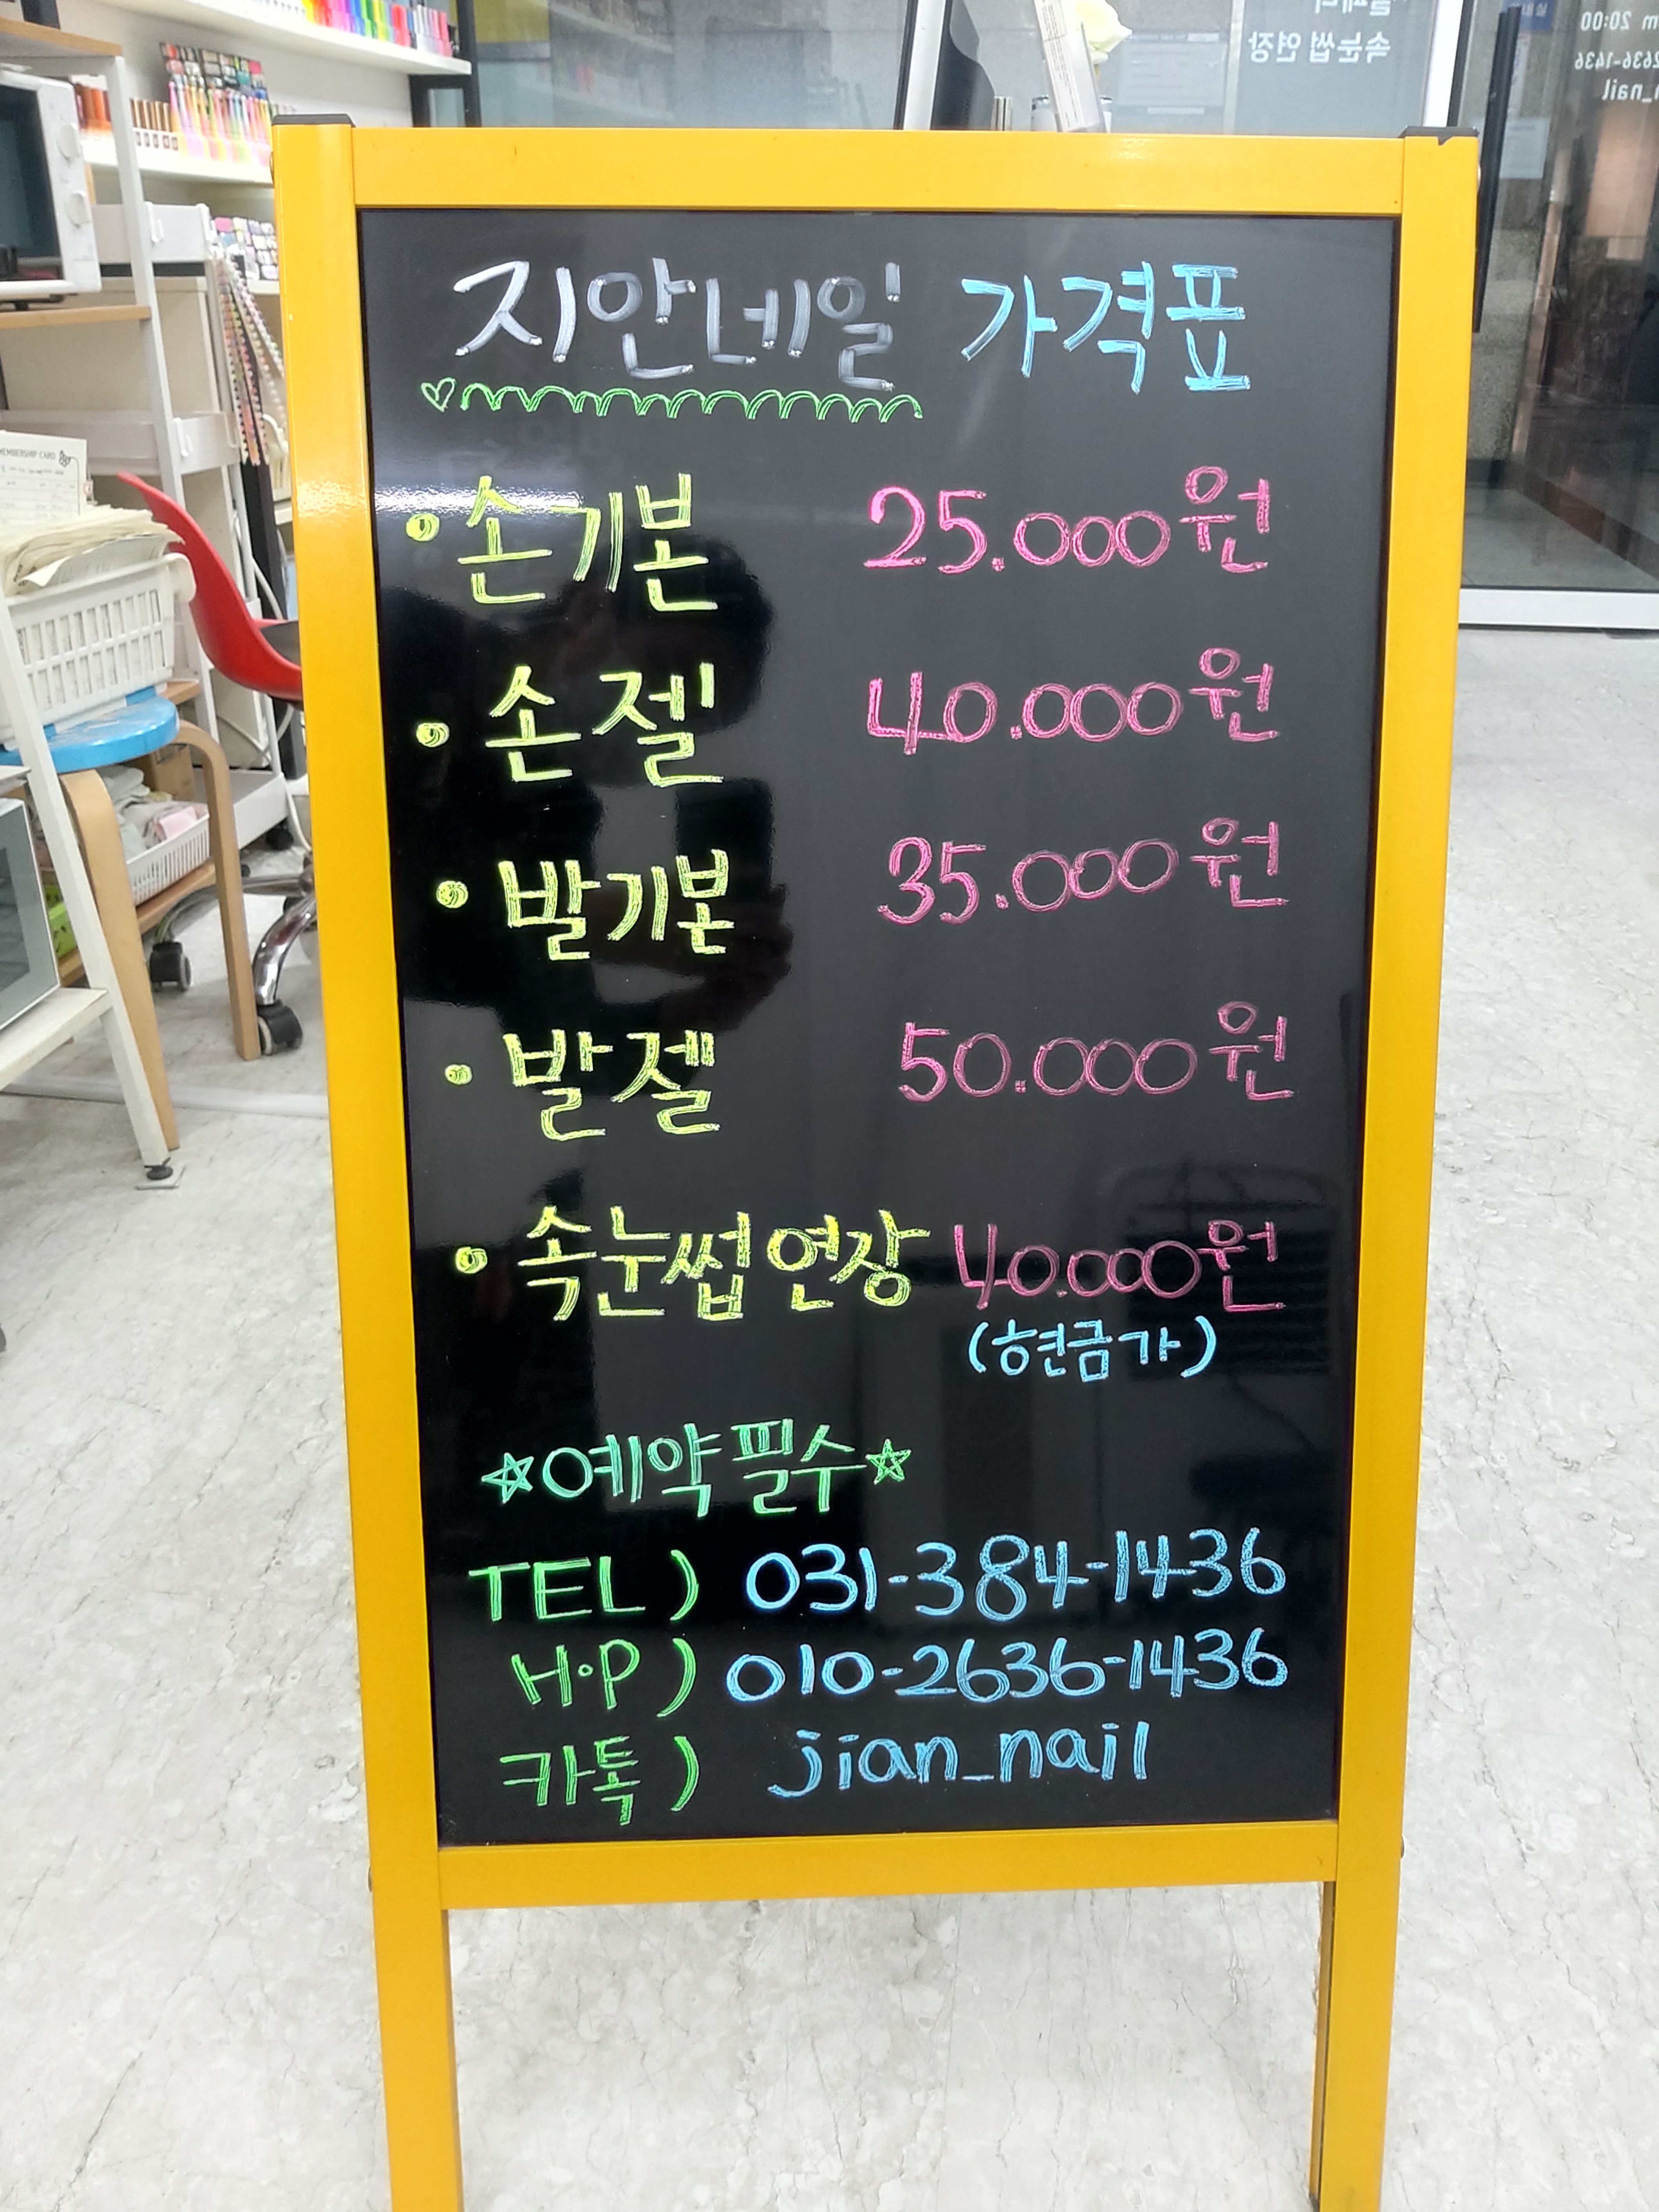 지안네일 가격표
손기본 25.000원
손젤 40.000원
발기본 35.000원
발젤 50.000원
속눈썹 연장 40.000원
(현금가)
☆예약필수☆
TEL) 031-384-1436
H·P) 010-2636-1436
카톡) jian_nail
MEMBERSHIP CARD
속눈썹 연장
20:00
2636-1436
_nail